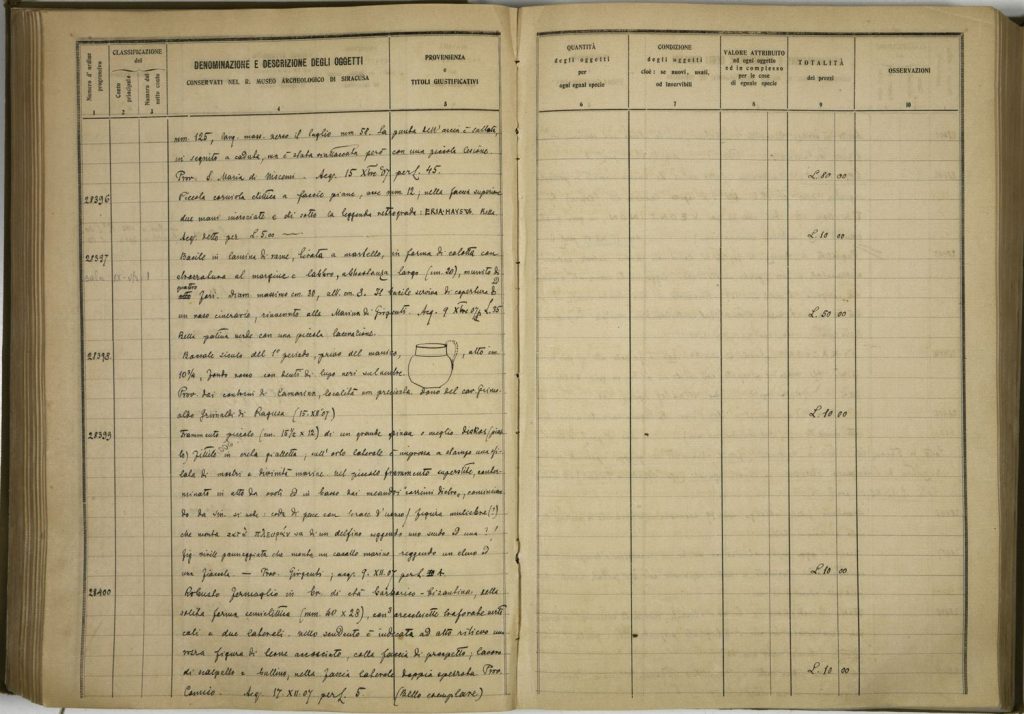 Numero d'ordine progressivo
CLASSIFICAZIONE del
Conto principale
Numero del sotto conto
DENOMINAZIONE E DESCRIZIONE DEGLI OGGETTI
CONSERVATI NEL R. MUSEO ARCHEOLOGICO DI SIRACUSA
PROVENIENZA
e
TITOLI GIUSTIFICATIVI
1 2 3 4 5
mm. 125, larg. mass. verso il taglio mm. 58. La punta dell'ascia è saltata,
in seguito a caduta, ma è stata riattaccata però con una piccola lesione.
Prov. S. Maria di Niscemi. Acq. 15 Xbre 07 per £. 45.
28396 Piccola corniola ellittica a faccie piane, asse mm. 12; nella faccia superiore
due mani incrociate e di sotto la leggenda retrograda: Bella
Acq. detto per £ 5.00 —
28397 Bacile in lamina di rame, tirata a martello, in forma di calotta con
al margine e labbro, abbastanza largo (cm. 20), munito di
quattro fori. Diam. massimo cm. 30, alt. cm. 8. Il bacile serviva di copertura di
un vaso cinerario, rinvenuto alla Marina di Girgenti. Acq. 9 Xbre 07 p. £. 25
Bella patina verde con una piccola lacerazione.
28398 Boccale siculo del 1° periodo, privo del manico, , alto cm.
10¾, fondo rosso con denti di lupo neri sul ventre.
Prov. dai contorni di Camarina, località non precisata. Dono del cav. Grimo-
aldo Grimaldi di Ragusa (15.XII.07)
28399 Frammento piccolo (cm. 15½ x 12) di un grande pinax o meglio
fittile in creta gialletta, nell'orlo laterale è impressa a stampo una fi-
lata di mostri e divinità marine nel piccolo frammento superstite, conter-
minato in alto da ovoli ed in basso dai meandri correnti dietro, comincian-
do da sin. si vede: coda di pesce con braccio d'uomo / figura muliebre (?)
che monta κατὰ πλευρὰν su di un delfino reggendo uno scudo ed una ? /
fig. virile panneggiata che monta un cavallo marino reggendo un elmo ed
una fiaccola. — Prov. Girgenti; acq. 9. XII. 07 per £ 4.
28400 Robusto fermaglio in br. di età barbarico-bizantina, della
solita forma semiellittica (mm. 40 x 28), con 3 orecchiette traforate verti-
cali e due laterali. nello scudetto è indicata ad alto rilievo una
figura di leone accosciato, colla faccia di prospetto; lavoro
di scalpello e bulino, nella faccia laterale doppia Prov.
Comiso. Acq. 17 XII 07 per £. 5 (Bello esemplare)
QUANTITÀ
degli oggetti
per
ogni egual specie
CONDIZIONE
degli oggetti
cioè: se nuovi, usati,
od inservibili
VALORE ATTRIBUITO
ad ogni oggetto
ed in complesso
per le cose
di eguale specie
TOTALITÀ
dei prezzi
OSSERVAZIONI
6 7 8 9 10
£. 80 00
£. 10 00
£. 50 00
£. 10 00
£. 10 00
£. 10 00